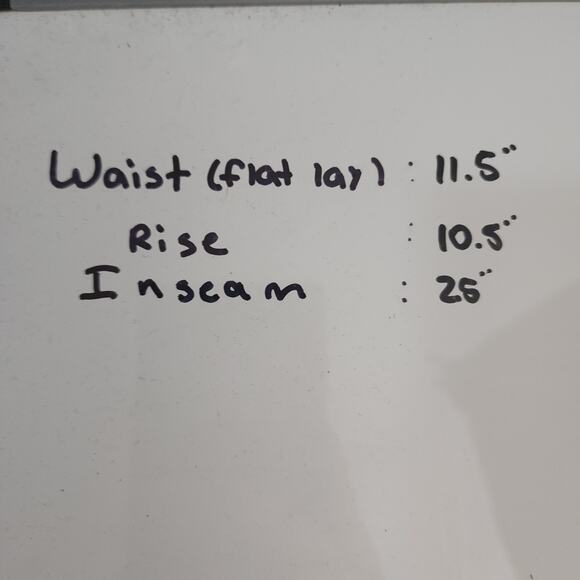 Waist (flat lay) : 11.5"
Rise : 10.5"
Inseam : 25"